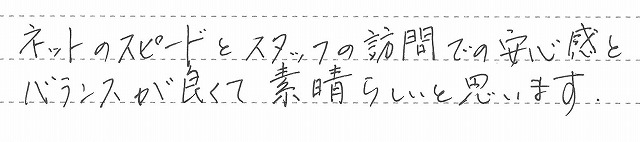 ネットのスピードとスタッフの訪問での安心感と
バランスが良くて素晴らしいと思います.